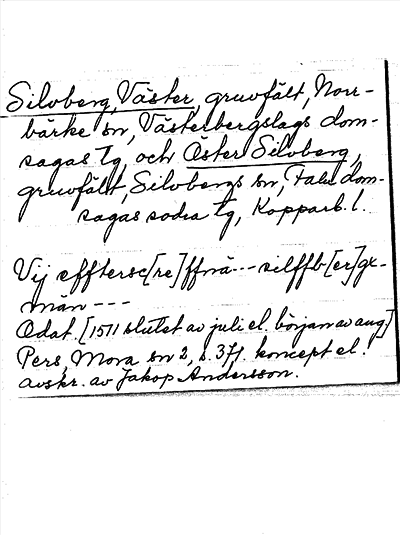 Silvberg, Väster, gruvfält, Norr-
bärke sn, Västerbergslags dom-
sagas tg, och Öster Silvberg,
gruvfält, Silvbergs sn, Falu dom-
sagas södra tg, Kopparb. l.
Vij efftersc[re]ffnä --- silffb[er]gx-
män ---
Odat. [1511 slutet av juli el. början av aug]
Pers, Mora sn 2, s. 37f. koncept el.
avskr. av Jakop Andersson.